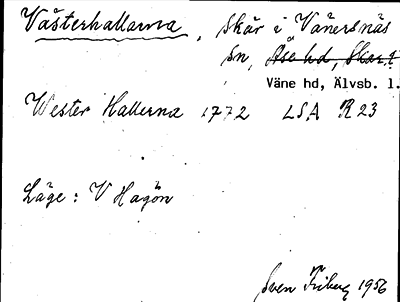 Västerhallarna, Skär i Vänersnäs
sn, Åse hd, Skar.l.
Väne hd, Älvsb. l.
Wester Hallerna 1772 LSA R 23
Läge: V Hagön
Sven Friberg 1956